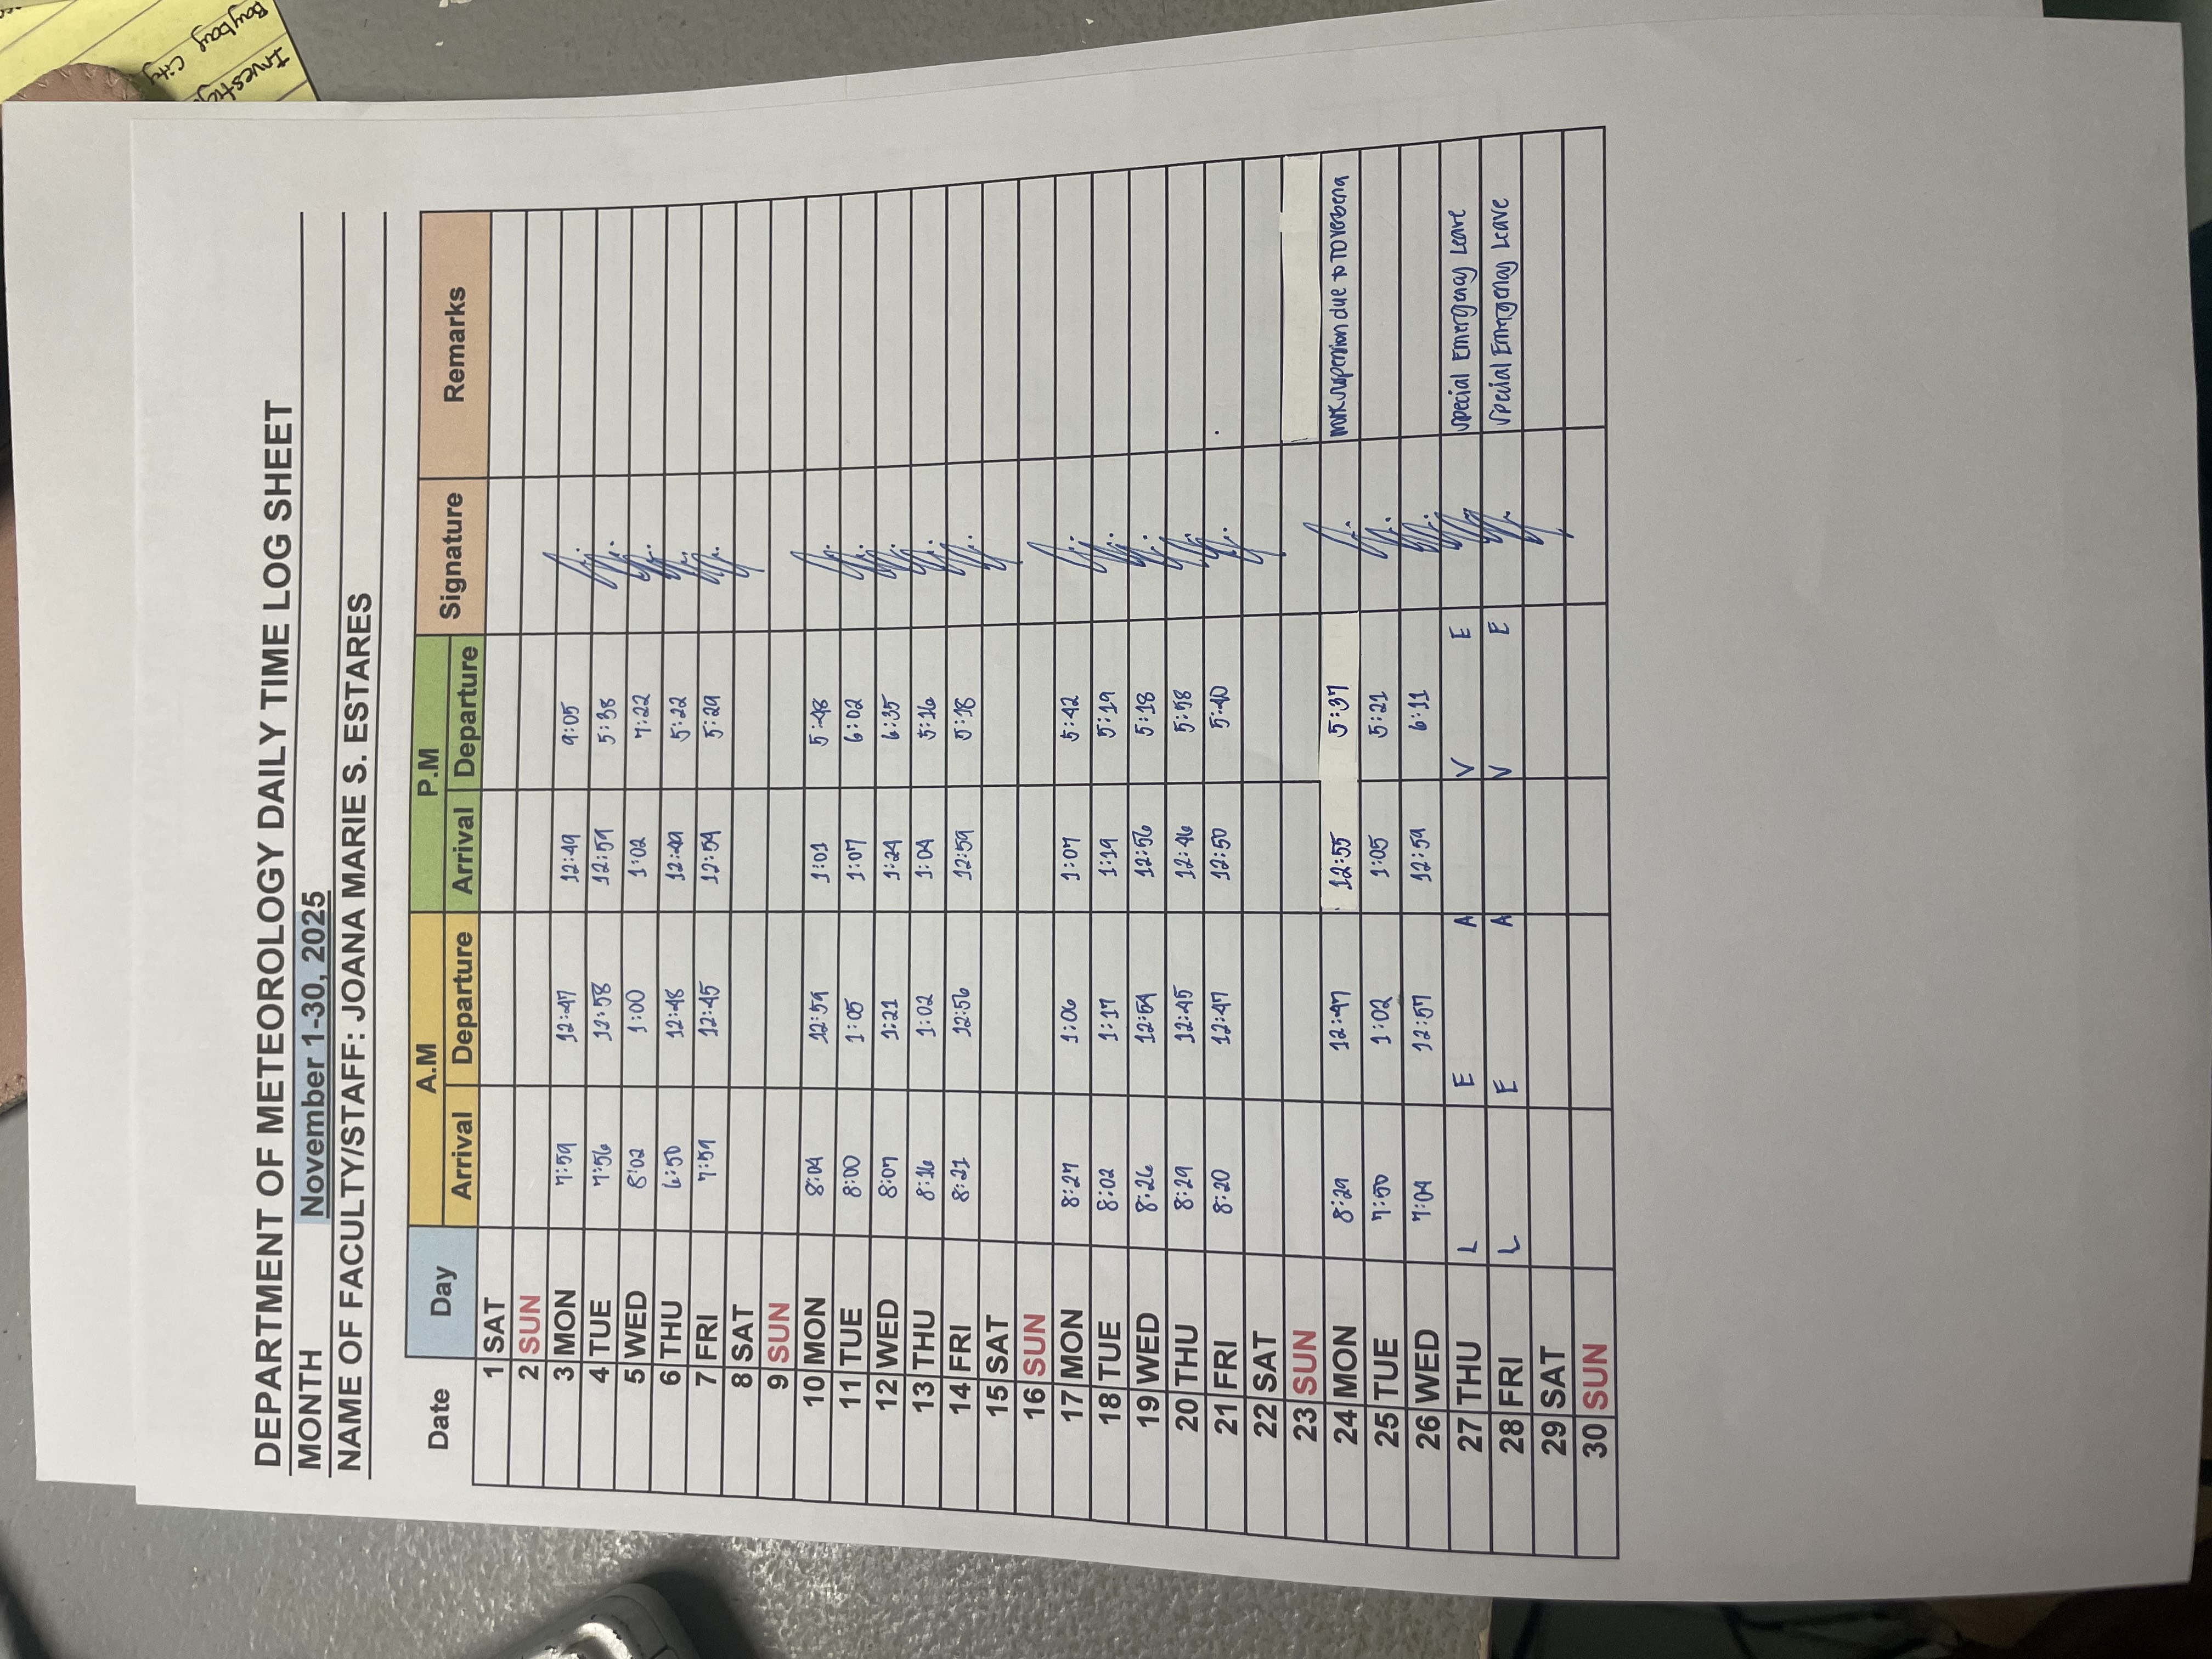 DEPARTMENT OF METEOROLOGY DAILY TIME LOG SHEET
MONTH November 1-30, 2025
NAME OF FACULTY/STAFF: JOANA MARIE S. ESTARES
Date Day A.M P.M Signature Remarks
Arrival Departure Arrival Departure
1 SAT
2 SUN
3 MON 7:59 12:47 12:49 9:05
4 TUE 7:56 12:58 12:59 5:38
5 WED 8:02 1:00 1:02 7:22
6 THU 6:50 12:48 12:49 5:22
7 FRI 7:59 12:45 12:54 5:29
8 SAT
9 SUN
10 MON 8:04 12:59 1:01 5:48
11 TUE 8:00 1:05 1:07 6:02
12 WED 8:07 1:21 1:24 6:35
13 THU 8:16 1:02 1:04 5:16
14 FRI 8:21 12:56 12:59 5:18
15 SAT
16 SUN
17 MON 8:27 1:06 1:07 5:42
18 TUE 8:02 1:17 1:19 5:19
19 WED 8:26 12:54 12:56 5:18
20 THU 8:29 12:45 12:46 5:58
21 FRI 8:20 12:47 12:50 5:40
22 SAT
23 SUN
24 MON 8:29 12:47 12:55 5:37 work suspension due to TD Verbena
25 TUE 7:50 1:02 1:05 5:21
26 WED 7:04 12:57 12:59 6:11
27 THU L E A V E Special Emergency Leave
28 FRI L E A V E Special Emergency Leave
29 SAT
30 SUN
Baybay City